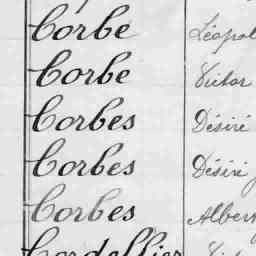 Corbe Léopol
Corbe Victor
Corbes Désiré
Corbes Désiré
Corbes Albert
Cordellier